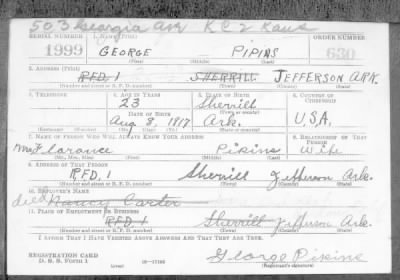 503 Georgia Ave K C 2 Kans
SERIAL NUMBER 1. NAME (Print) ORDER NUMBER
1999 GEORGE PIPINS 630
(First) (Middle) (Last)
2. ADDRESS (Print)
R.F.D. 1 SHERRILL JEFFERSON ARK.
(Number and street or R. F. D. number) (Town) (County) (State)
3. TELEPHONE 4. AGE IN YEARS 5. PLACE OF BIRTH 6. COUNTRY OF CITIZENSHIP
23 Sherrill
DATE OF BIRTH (Town or county)
Aug 8 1917 Ark. U.S.A.
(Exchange) (Number) (Mo.) (Day) (Yr.) (State or country)
7. NAME OF PERSON WHO WILL ALWAYS KNOW YOUR ADDRESS 8. RELATIONSHIP OF THAT PERSON
Mrs. Pikins Wife
(Mr., Mrs., Miss) (First) (Middle) (Last)
9. ADDRESS OF THAT PERSON
R.F.D. 1 Sherrill Jefferson Ark.
(Number and street or R. F. D. number) (Town) (County) (State)
10. EMPLOYER'S NAME
died Nancy Carter
11. PLACE OF EMPLOYMENT OR BUSINESS
R.F.D. 1 Sherrill Jefferson Ark.
(Number and street or R. F. D. number) (Town) (County) (State)
I AFFIRM THAT I HAVE VERIFIED ABOVE ANSWERS AND THAT THEY ARE TRUE.
REGISTRATION CARD George Pikins
D. S. S. Form 1 (over) 16—17105 (Registrant's signature)